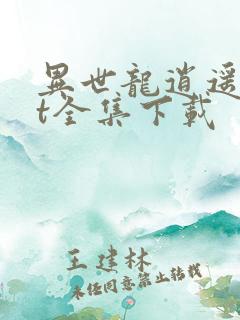 異世龍逍遥
t全集下载
王建林
未经同意禁止转载